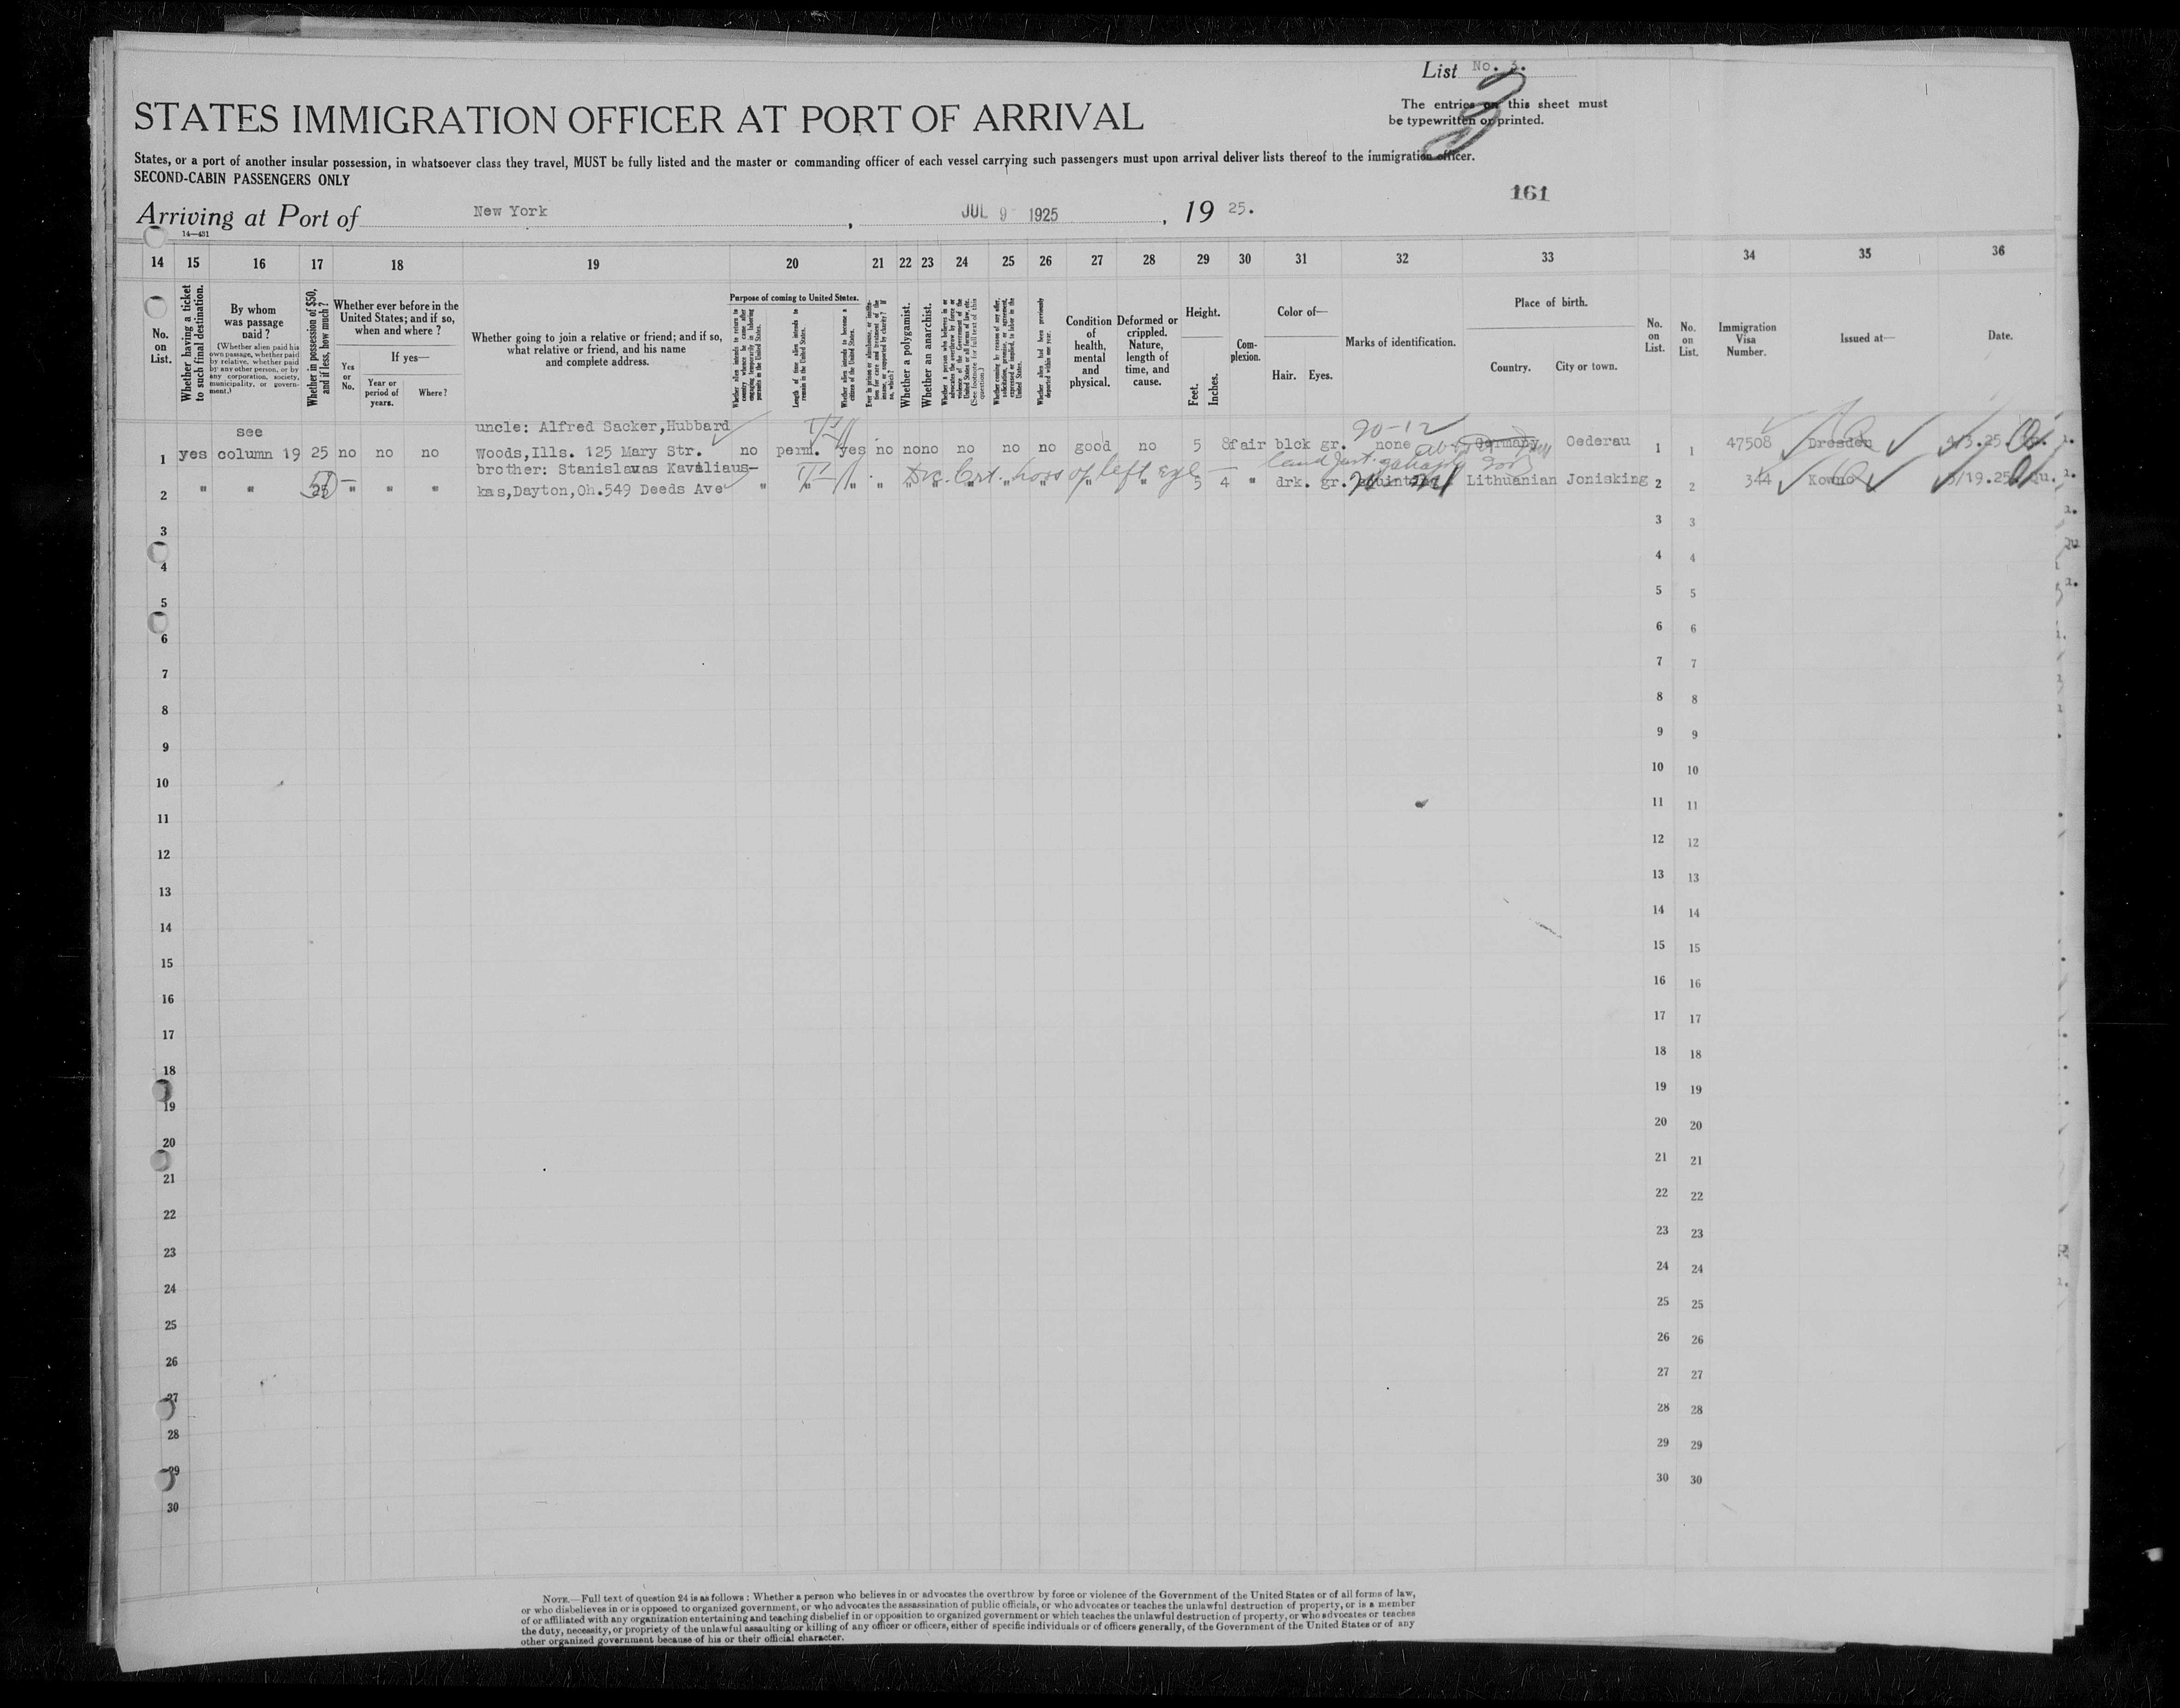 List No. 3.
3
The entries on this sheet must
be typewritten or printed.
STATES IMMIGRATION OFFICER AT PORT OF ARRIVAL
States, or a port of another insular possession, in whatsoever class they travel, MUST be fully listed and the master or commanding officer of each vessel carrying such passengers must upon arrival deliver lists thereof to the immigration officer.
SECOND-CABIN PASSENGERS ONLY
161
Arriving at Port of New York, JUL 9 1925, 19 25.
14—431
14 15 16 17 18 19 20 21 22 23 24 25 26 27 28 29 30 31 32 33 34 35 36
No. on List.
Whether having a ticket to such final destination.
By whom was passage paid?
(Whether alien paid his own passage, whether paid by relative, whether paid by any other person, or by any corporation, society, municipality, or government.)
Whether in possession of $50, and if less, how much?
Whether ever before in the United States; and if so, when and where?
Yes or No.
If yes—
Year or period of years.
Where?
Whether going to join a relative or friend; and if so, what relative or friend, and his name and complete address.
Purpose of coming to United States.
Whether alien intends to return to country whence he came after engaging temporarily in laboring pursuits in the United States.
Length of time alien intends to remain in the United States.
Whether alien intends to become a citizen of the United States.
Ever in prison or almshouse, or institution for care and treatment of the insane, or supported by charity? If so, which?
Whether a polygamist.
Whether an anarchist.
Whether a person who believes in or advocates the overthrow by force or violence of the Government of the United States or all forms of law, etc. (See footnote for full text of this question.)
Whether coming by reason of any offer, solicitation, promise, or agreement, expressed or implied, to labor in the United States.
Whether alien had been previously deported within one year.
Condition of health, mental and physical.
Deformed or crippled. Nature, length of time, and cause.
Height.
Feet. Inches.
Complexion.
Color of—
Hair. Eyes.
Marks of identification.
Place of birth.
Country. City or town.
No. on List.
No. on List.
Immigration Visa Number.
Issued at—
Date.
see uncle: Alfred Sacker,Hubbard 20-12
1 yes column 19 25 no no no Woods,Ills. 125 Mary Str. no perm. yes no no no no no no good no 5 8 fair blck gr. none Germany Oederau 1 1 47508 Dresden 4/3.25
brother: Stanislavas Kavaliaus-
2 " " 25 50 " " " kas,Dayton,Oh.549 Deeds Ave " " " " " " " " " " " loss of left eye 5 4 " drk. gr. Lithuanian Jonisking 2 2 344 Kowno 5/19.25 Qu.
3 3 3
4 4 4
5 5 5
6 6 6
7 7 7
8 8 8
9 9 9
10 10 10
11 11 11
12 12 12
13 13 13
14 14 14
15 15 15
16 16 16
17 17 17
18 18 18
19 19 19
20 20 20
21 21 21
22 22 22
23 23 23
24 24 24
25 25 25
26 26 26
27 27 27
28 28 28
29 29 29
30 30 30
NOTE.—Full text of question 24 is as follows: Whether a person who believes in or advocates the overthrow by force or violence of the Government of the United States or of all forms of law,
or who disbelieves in or is opposed to organized government, or who advocates the assassination of public officials, or who advocates or teaches the unlawful destruction of property, or is a member
of or affiliated with any organization entertaining and teaching disbelief in or opposition to organized government or which teaches the unlawful destruction of property, or who advocates or teaches
the duty, necessity, or propriety of the unlawful assaulting or killing of any officer or officers, either of specific individuals or of officers generally, of the Government of the United States or of any
other organized government because of his or their official character.